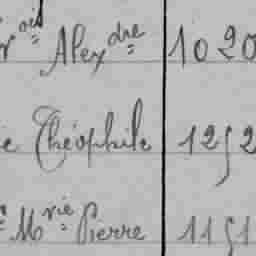 çois Alexdre 1020
e Théophile 1252
Mrie Pierre 1151